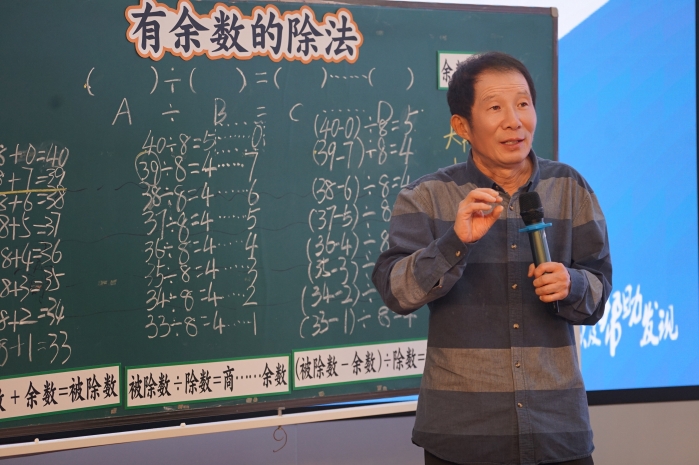 有余数的除法
( )÷( )=( )……( )
余
A ÷ B = C …… D
8+0=40
8+7=39
8+6=38
8+5=37
8+4=36
8+3=35
8+2=34
8+1=33
40÷8=5……0
39÷8=4……7
38÷8=4……6
37÷8=4……5
36÷8=4……4
35÷8=4……3
34÷8=4……2
33÷8=4……1
(40-0)÷8=5
(39-7)÷8=4
(38-6)÷8=4
(37-5)÷8=
(36-4)÷8=
(35-3)÷8=
(34-2)÷8=
(33-1)÷8=4
+余数=被除数
被除数÷除数=商……余数
(被除数-余数)÷除数=
帮助发现